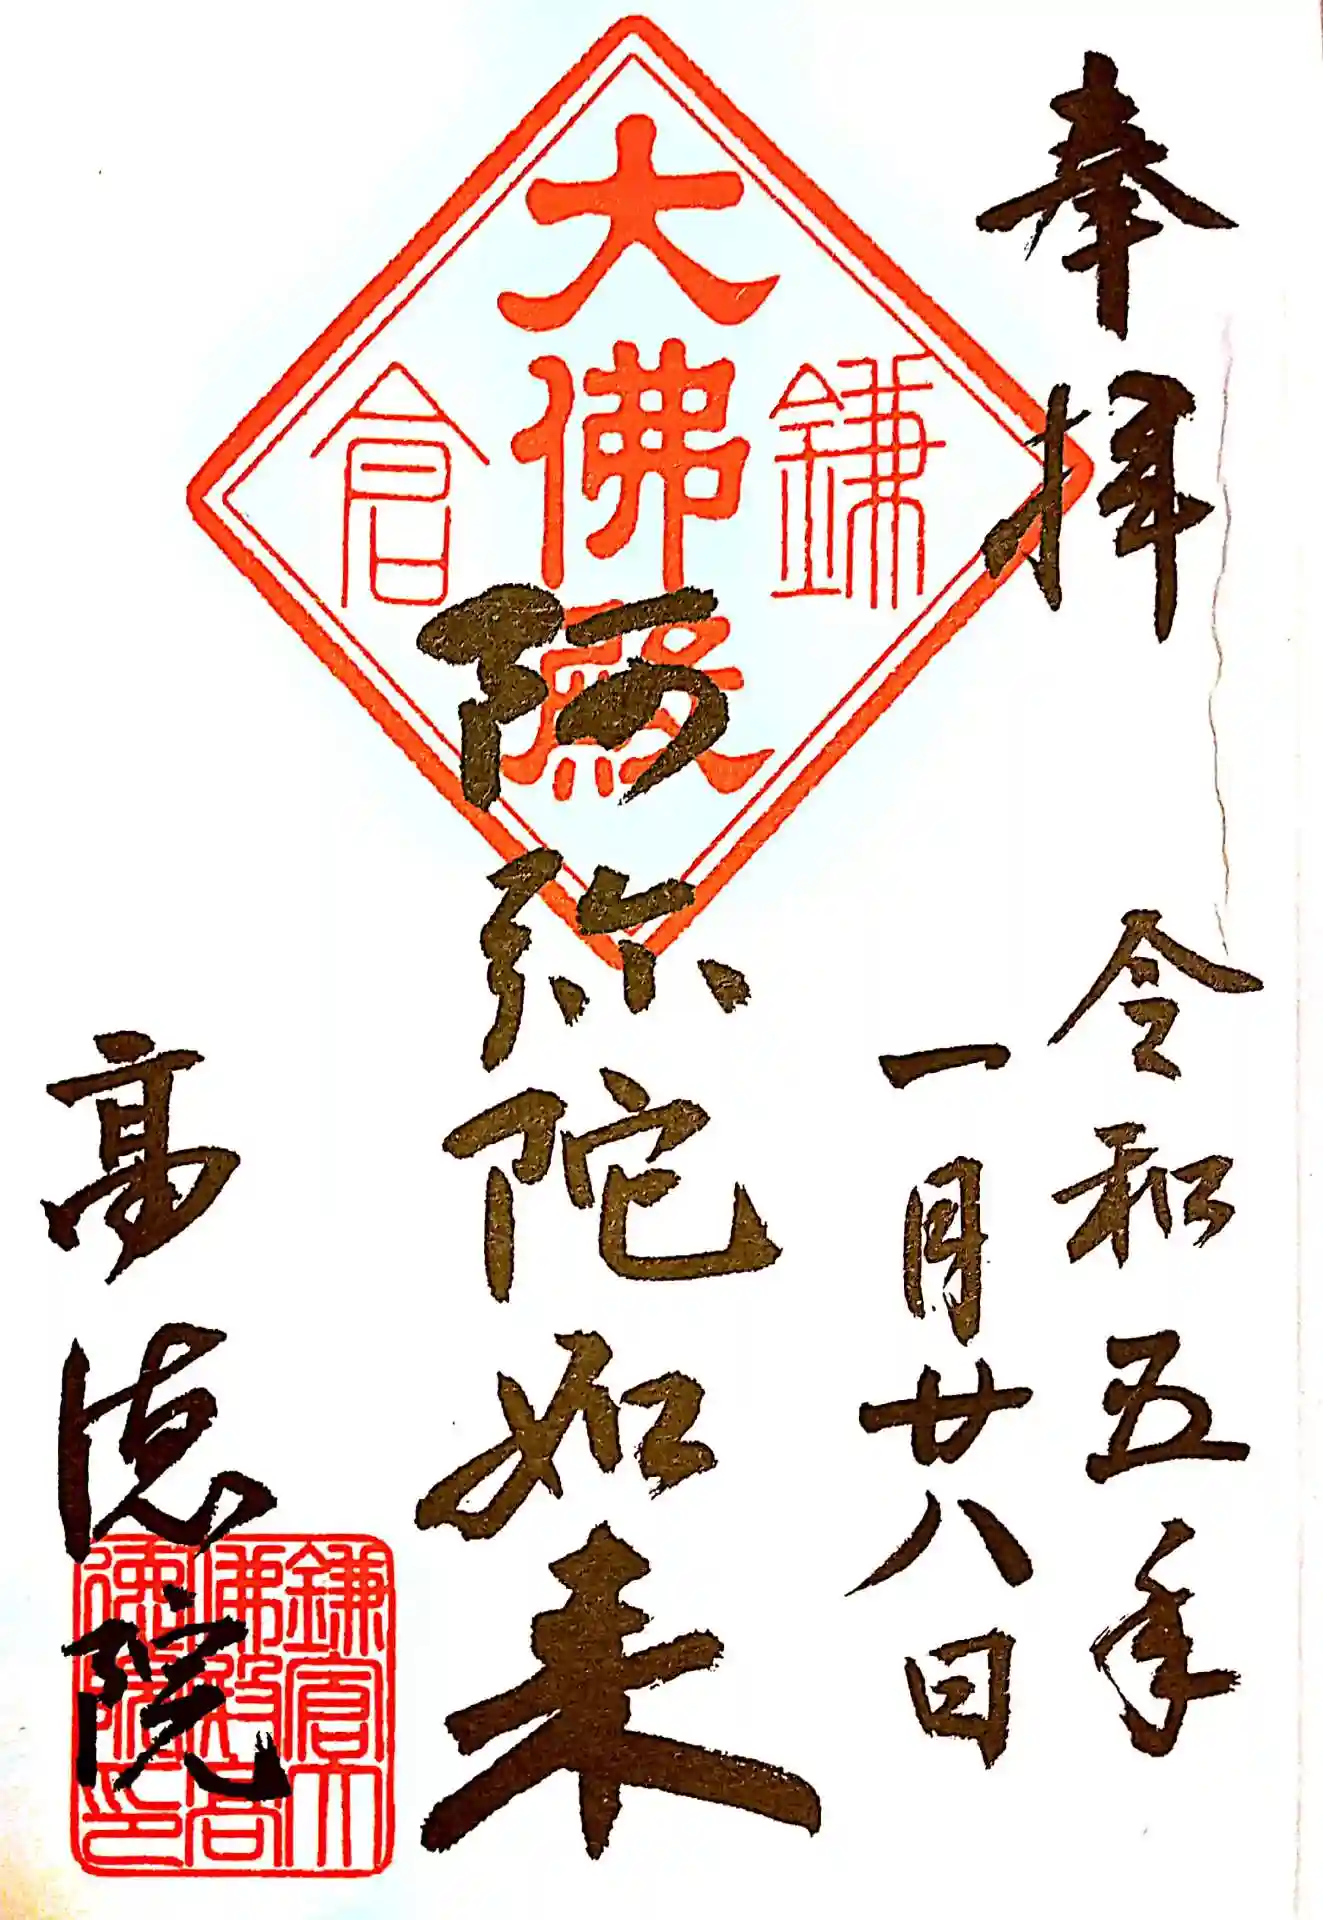 奉拝
令和五年
一月廿八日
鎌倉
大佛殿
阿弥陀如来
高徳院
鎌倉大
佛殿高
徳院印